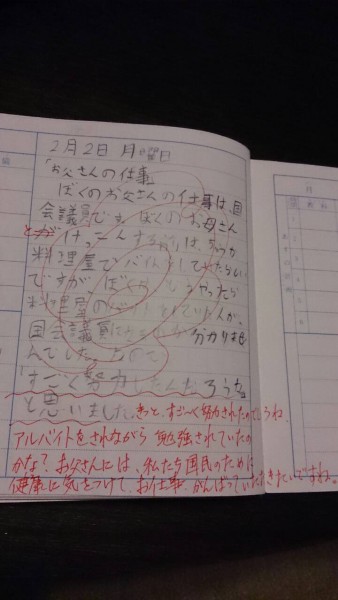 2月2日 月曜日
「お父さんの仕事」
ぼくのお父さんの仕事は、国
会議員です。ぼくのお母さん
とけっこんする前は、
料理屋でバイトをしてたらしい
ですが ぼくは どうやったら
料理屋のバイト
国会議員になれるか分かりませ
んでした。なので
「すごく努力したんだろうな。」
と思いました。きっと、すごーく努力されたのでしょうね。
アルバイトをされながら 勉強されていたの
かな? お父さんには、私たち国民のために
健康に気をつけて、お仕事 がんばっていただきたいですね。
月